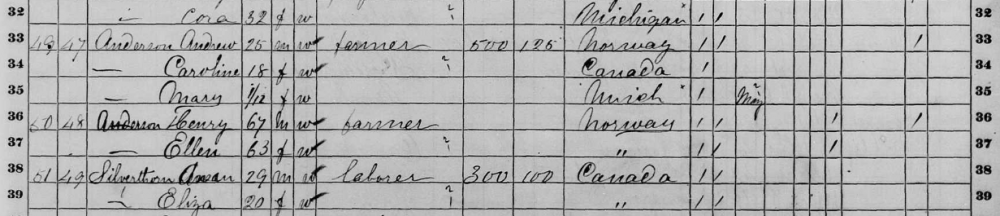 32 " Cora 32 f w " Michigan / / 32
33 49 47 Anderson Andrew 25 m w farmer 500 125 Norway / / / 33
34 — Caroline 18 f w " Canada / 34
35 — Mary 1/12 f w Mich / May 35
36 50 48 Anderson Henry 67 m w farmer Norway / / / / 36
37 — Ellen 63 f w " " / / / 37
38 51 49 Silverthorn 29 m w laborer 300 100 Canada / / 38
39 " Eliza 20 f w " " / / 39